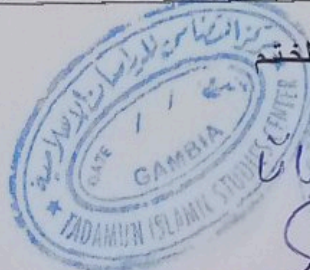 الختم
مركز التضامن للدراسات الإسلامية
DATE / /
GAMBIA
★ TADAMUN ISLAMIC STUDIES CENTER